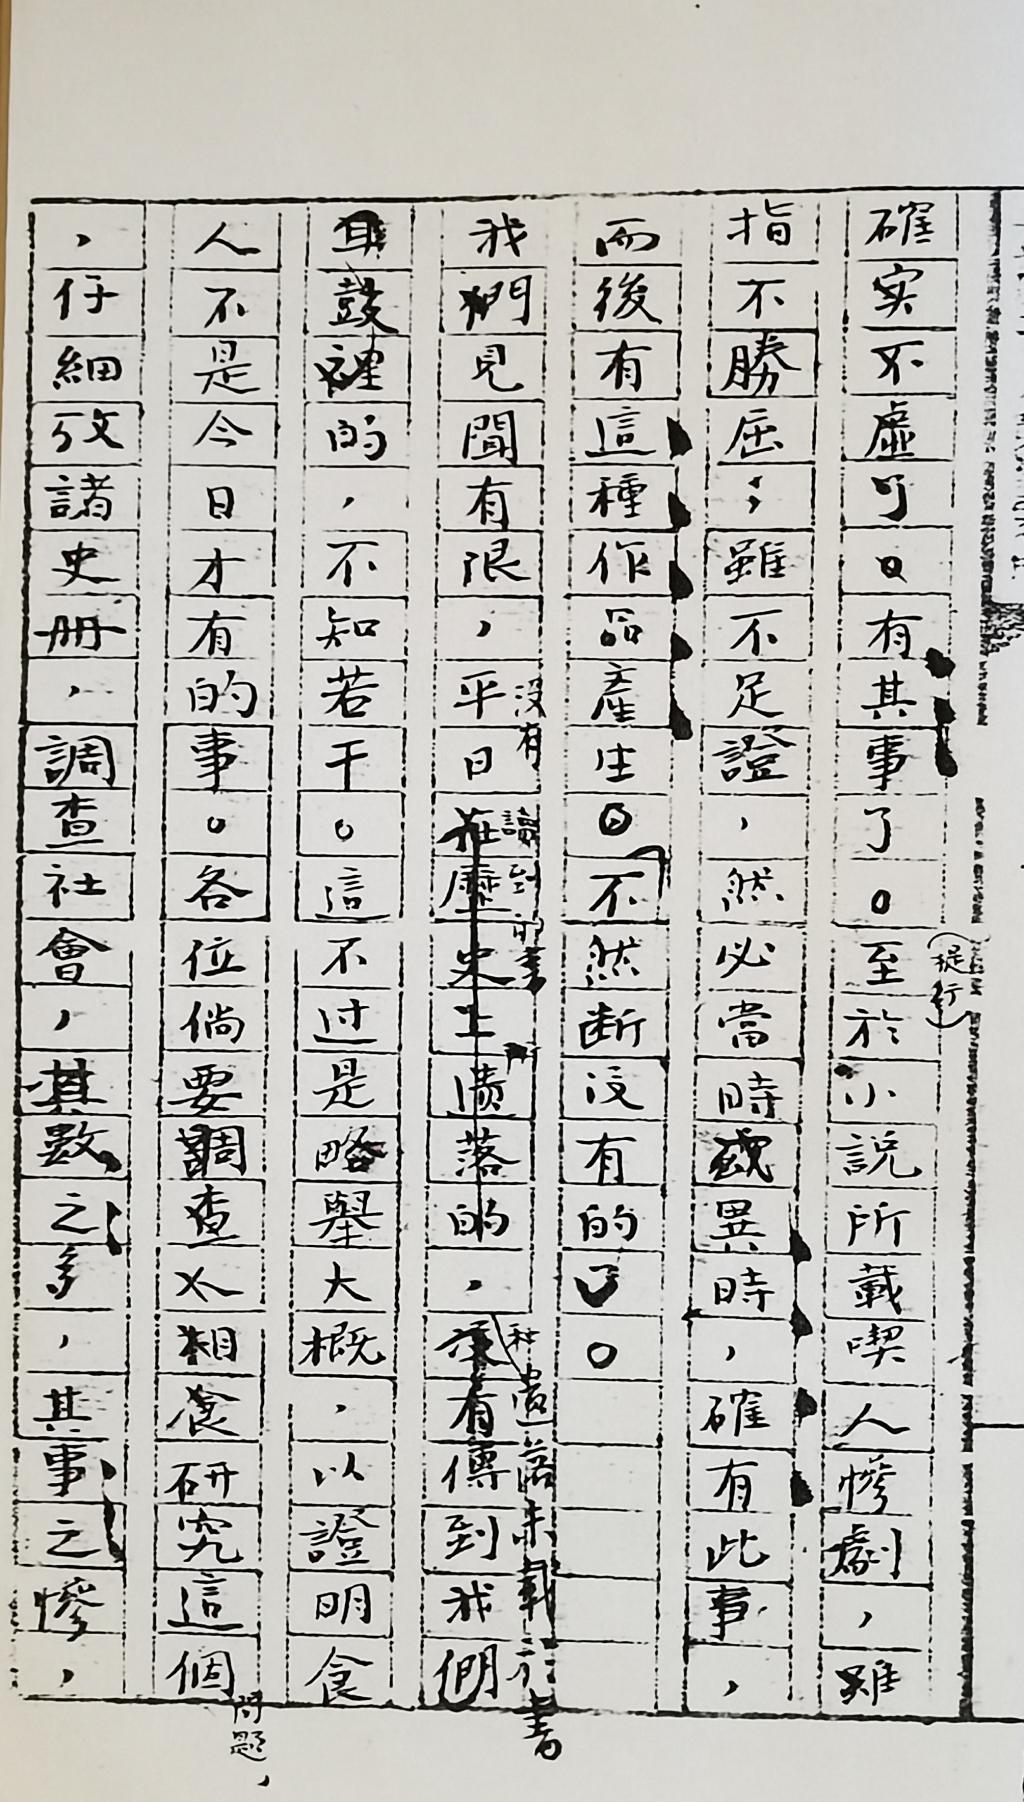 確实不虛可。有其事了。至於小說所載喫人慘劇,雖
(提行)
指不勝屈;雖不足證,然必當時或異時,確有此事,
而後有這種作品產生。不然断没有的。
我們見聞有限,平日在歷史上遺落的,沒有傳到我們
没有讀到的書
和遺落未載於書
耳鼓裡的,不知若干。這不过是略舉大概,以證明食
人不是今日才有的事。各位倘要調查人相食研究這個
問題,
,仔細攷諸史册,調查社會,其數之多,其事之慘,